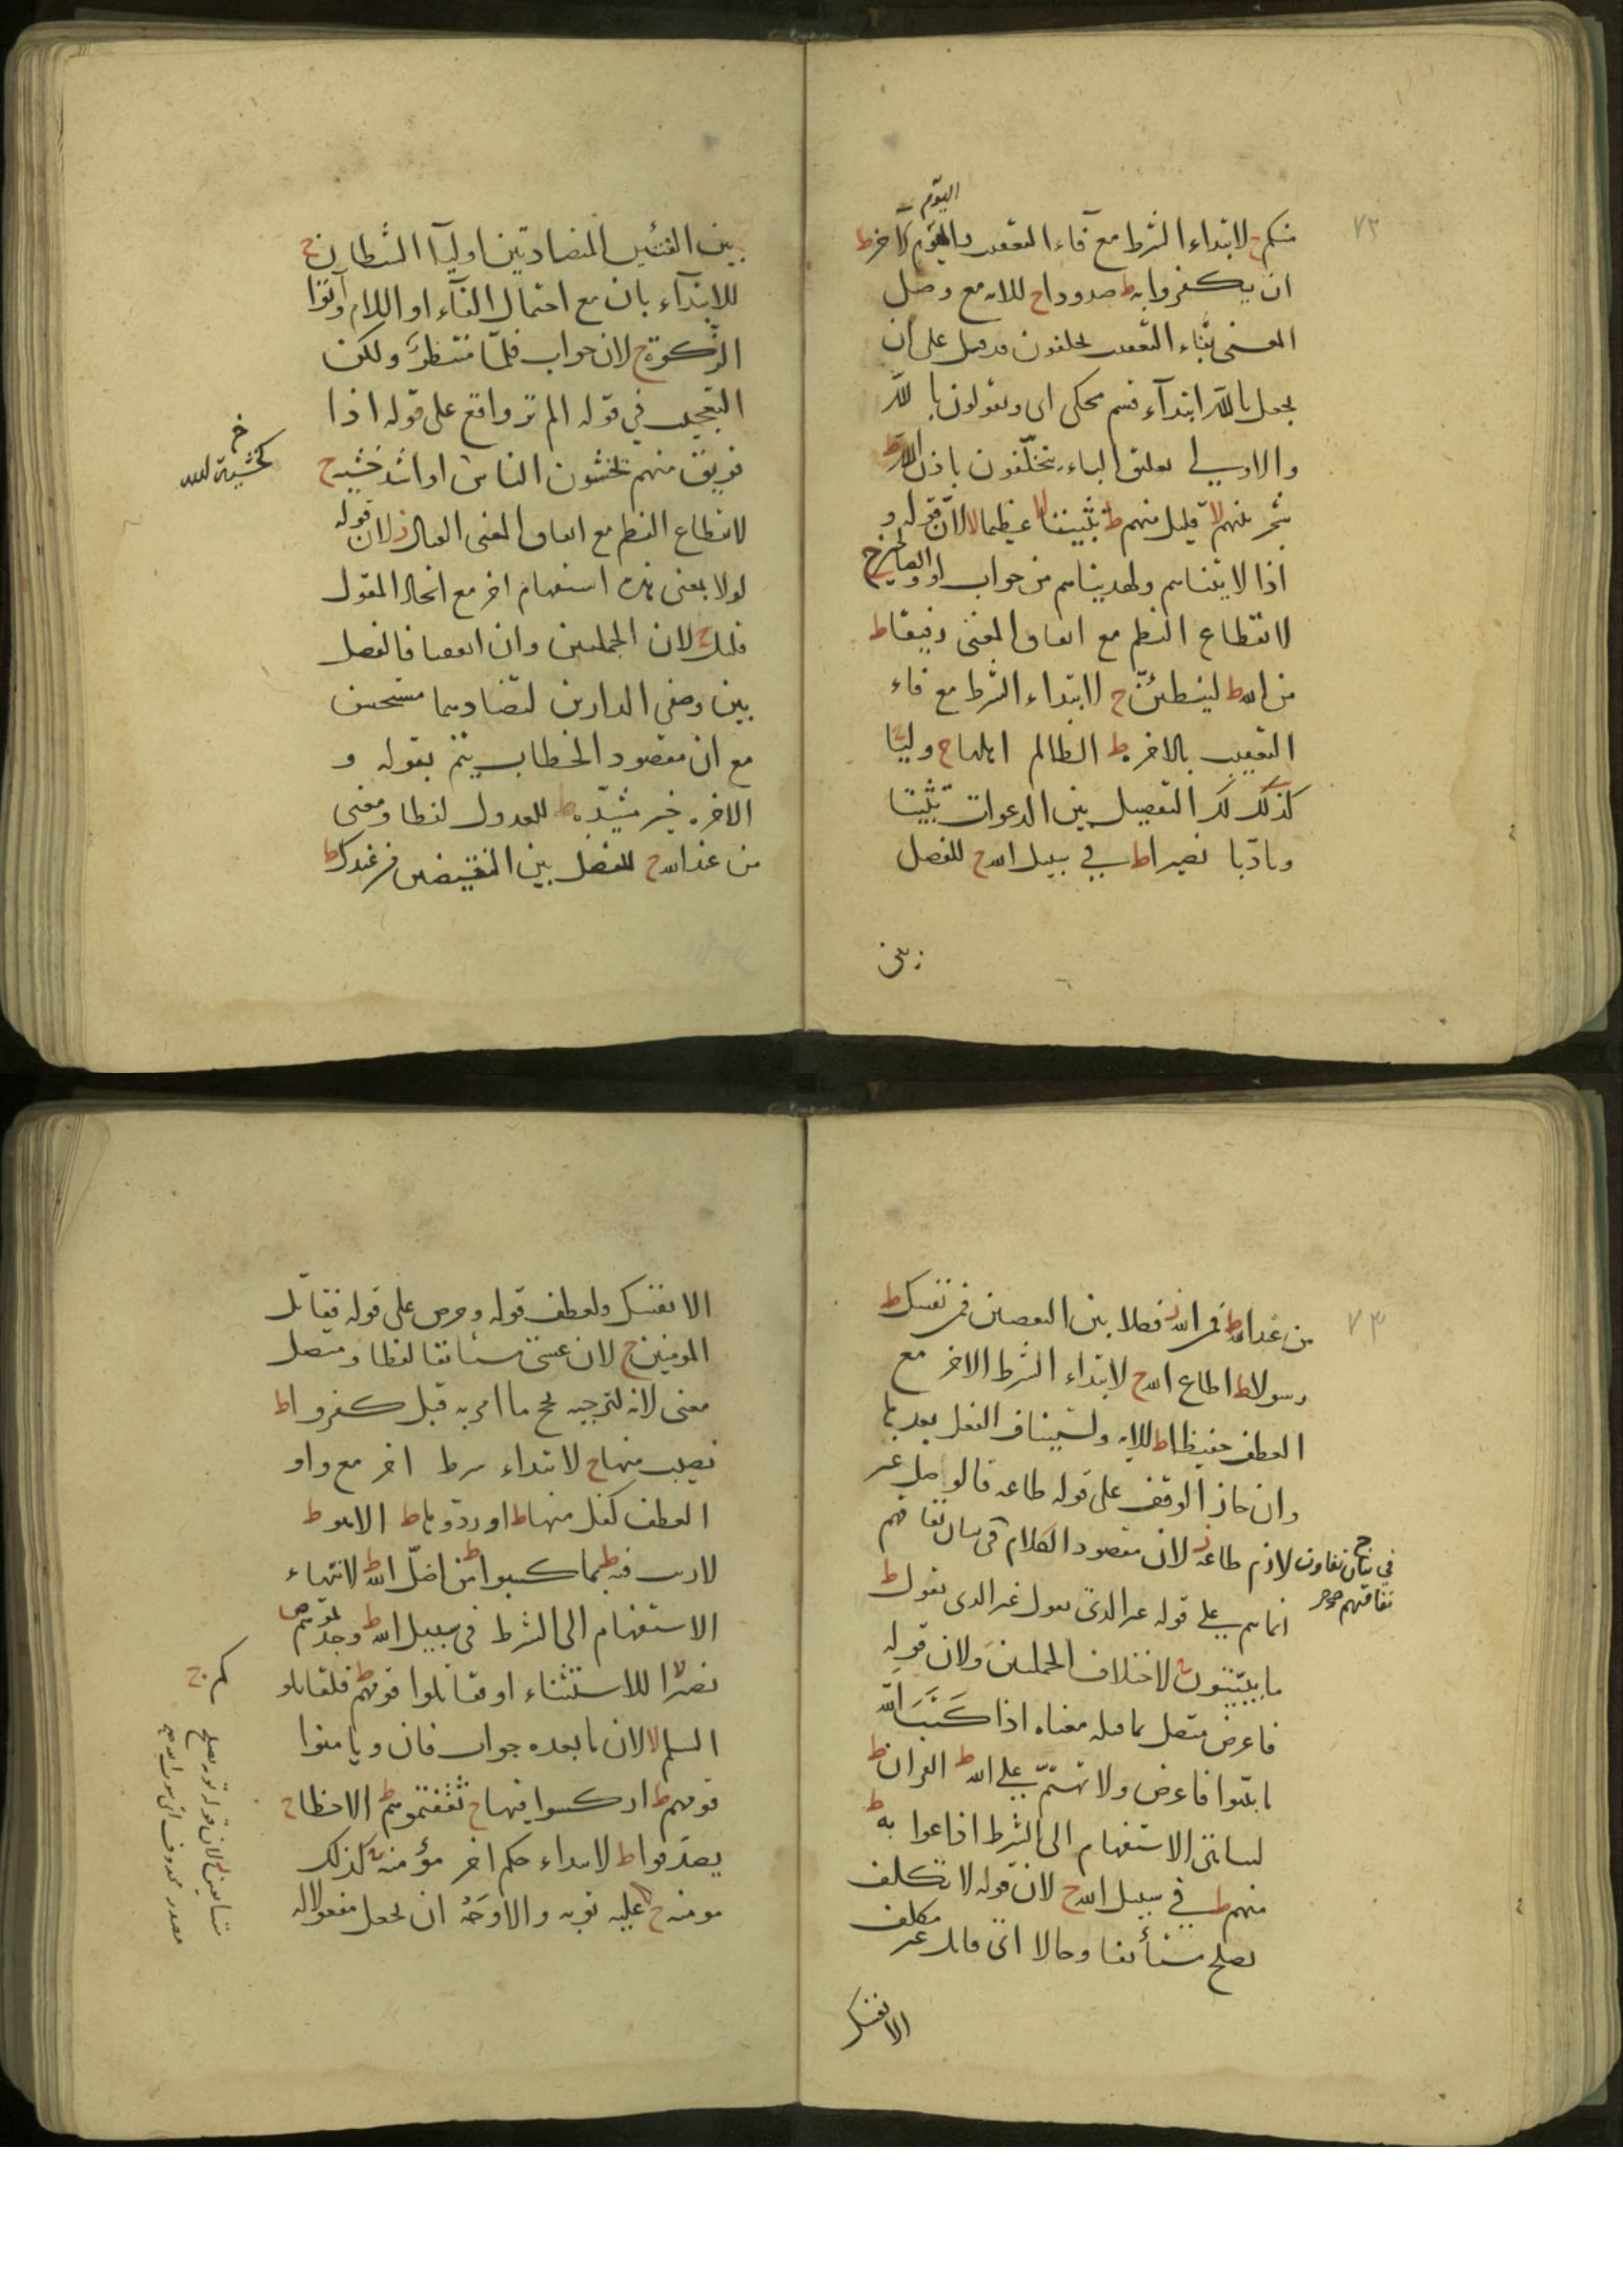 ٧٢
اليوم
منكم ج لابتداء الشرط مع فاء التعقيب واليوم الاخر ط
ان يكفروا به ط صدودا ج للايه مع وصل
المعنى بفاء التعقيب يحلفون قد قيل على ان
يجعل بالله ابتداء قسم محكى اى ويقولون بالله
والاولى تعليق الباء بيحلفون باذن الله ط
شجر بينهم لا قليل منهم ط تثبيتا لا عظيما لا لان قوله و
اذا لاتيناهم ولهديناهم من جواب لو والصالحين ج
لانقطاع النظم مع اتفاق المعنى رفيقا ط
من الله ط ليبطئن ج لابتداء الشرط مع فاء
التعقيب بالاخره ط الظالم اهلها ج وليا
كذلك لك التفصيل بين الدعوات تثبيتا
وتادبا نصيرا ط في سبيل الله ج للفصل
بين
بين الفئتين المتضادتين اوليآ الشيطان ج
للابتدآء بان مع احتمال الفآء او اللام وآتوا
الزكوة ج لان جواب فلما منتظر ولكن
التعجيب في قوله الم تر واقع على قوله اذا
فريق منهم يخشون الناس او اشد خشية ج
كخشية الله
لانقطاع النظم مع اتفاق المعنى القتال ز لان قوله
لولا بمعنى هلا استفهام اخر مع اتحاد المقول
قليل ج لان الجملتين وان اتفقتا فالفصل
بين وصفى الدارين لتضادهما مستحسن
مع ان مقصود الخطاب يتم بقوله و
الاخره خير مشيده ط للعدول لفظا ومعنى
من عند الله ج للفصل بين النقيضين من عندك ط
٧٣
من عند الله ط فمن الله ز فصلا بين النقيضين فمن نفسك ط
رسولا ط اطاع الله ج لابتداء الشرط الاخر مع
العطف حفيظا ط للايه ولاستيناف الفعل بعدها
وان جاز الوقف على قوله طاعه قالوصل غير
لازم طاعة ز لان مقصود الكلام في بيان نفاقهم
في بيان تفاوت
نفاقهم
انما هم على قوله غير الذى يقول غير الذى تقول ط
ما يبيتون ج لاختلاف الجملتين ولان قوله
فاعرض متصل بما قبله معناه اذا كتب الله
ما بيتوا فاعرض ولا تهتم على الله ط القران ط
لتناهى الاستفهام الى الشرط اذاعوا به ط
منهم ط في سبيل الله ج لان قوله لا تكلف
يصلح مستأنفا وحالا اى قاتل غير مكلف
الا نفسك
الا نفسك ولعطف قوله وحرض على قوله فقاتل
المومنين ج لان عسى مستأنف لفظا ومتصل
معنى لانه لترجيه نجح ما امر به قبل كفروا ط
نصيب منها ج لابتداء شرط اخر مع واو
العطف كفل منها ط او ردوها ط الا هو ط
لا ريب فيه ط بما كسبوا ط من اضل الله ط لانتهاء
الاستفهام الى الشرط في سبيل الله ط وجدتموهم ص
نصيرا لا للاستثناء او يقاتلوا قومهم ط فلقاتلو
كم ج
السلم لا لان ما بعده جواب فان ويامنوا
قومهم ط اركسوا فيها ج ثقفتموهم ط الا خطا ج
يصدقوا ط لابتداء حكم اخر مؤمنة ط كذلك
مومنه ج عليه توبه والاوجه ان يجعل مفعولا له